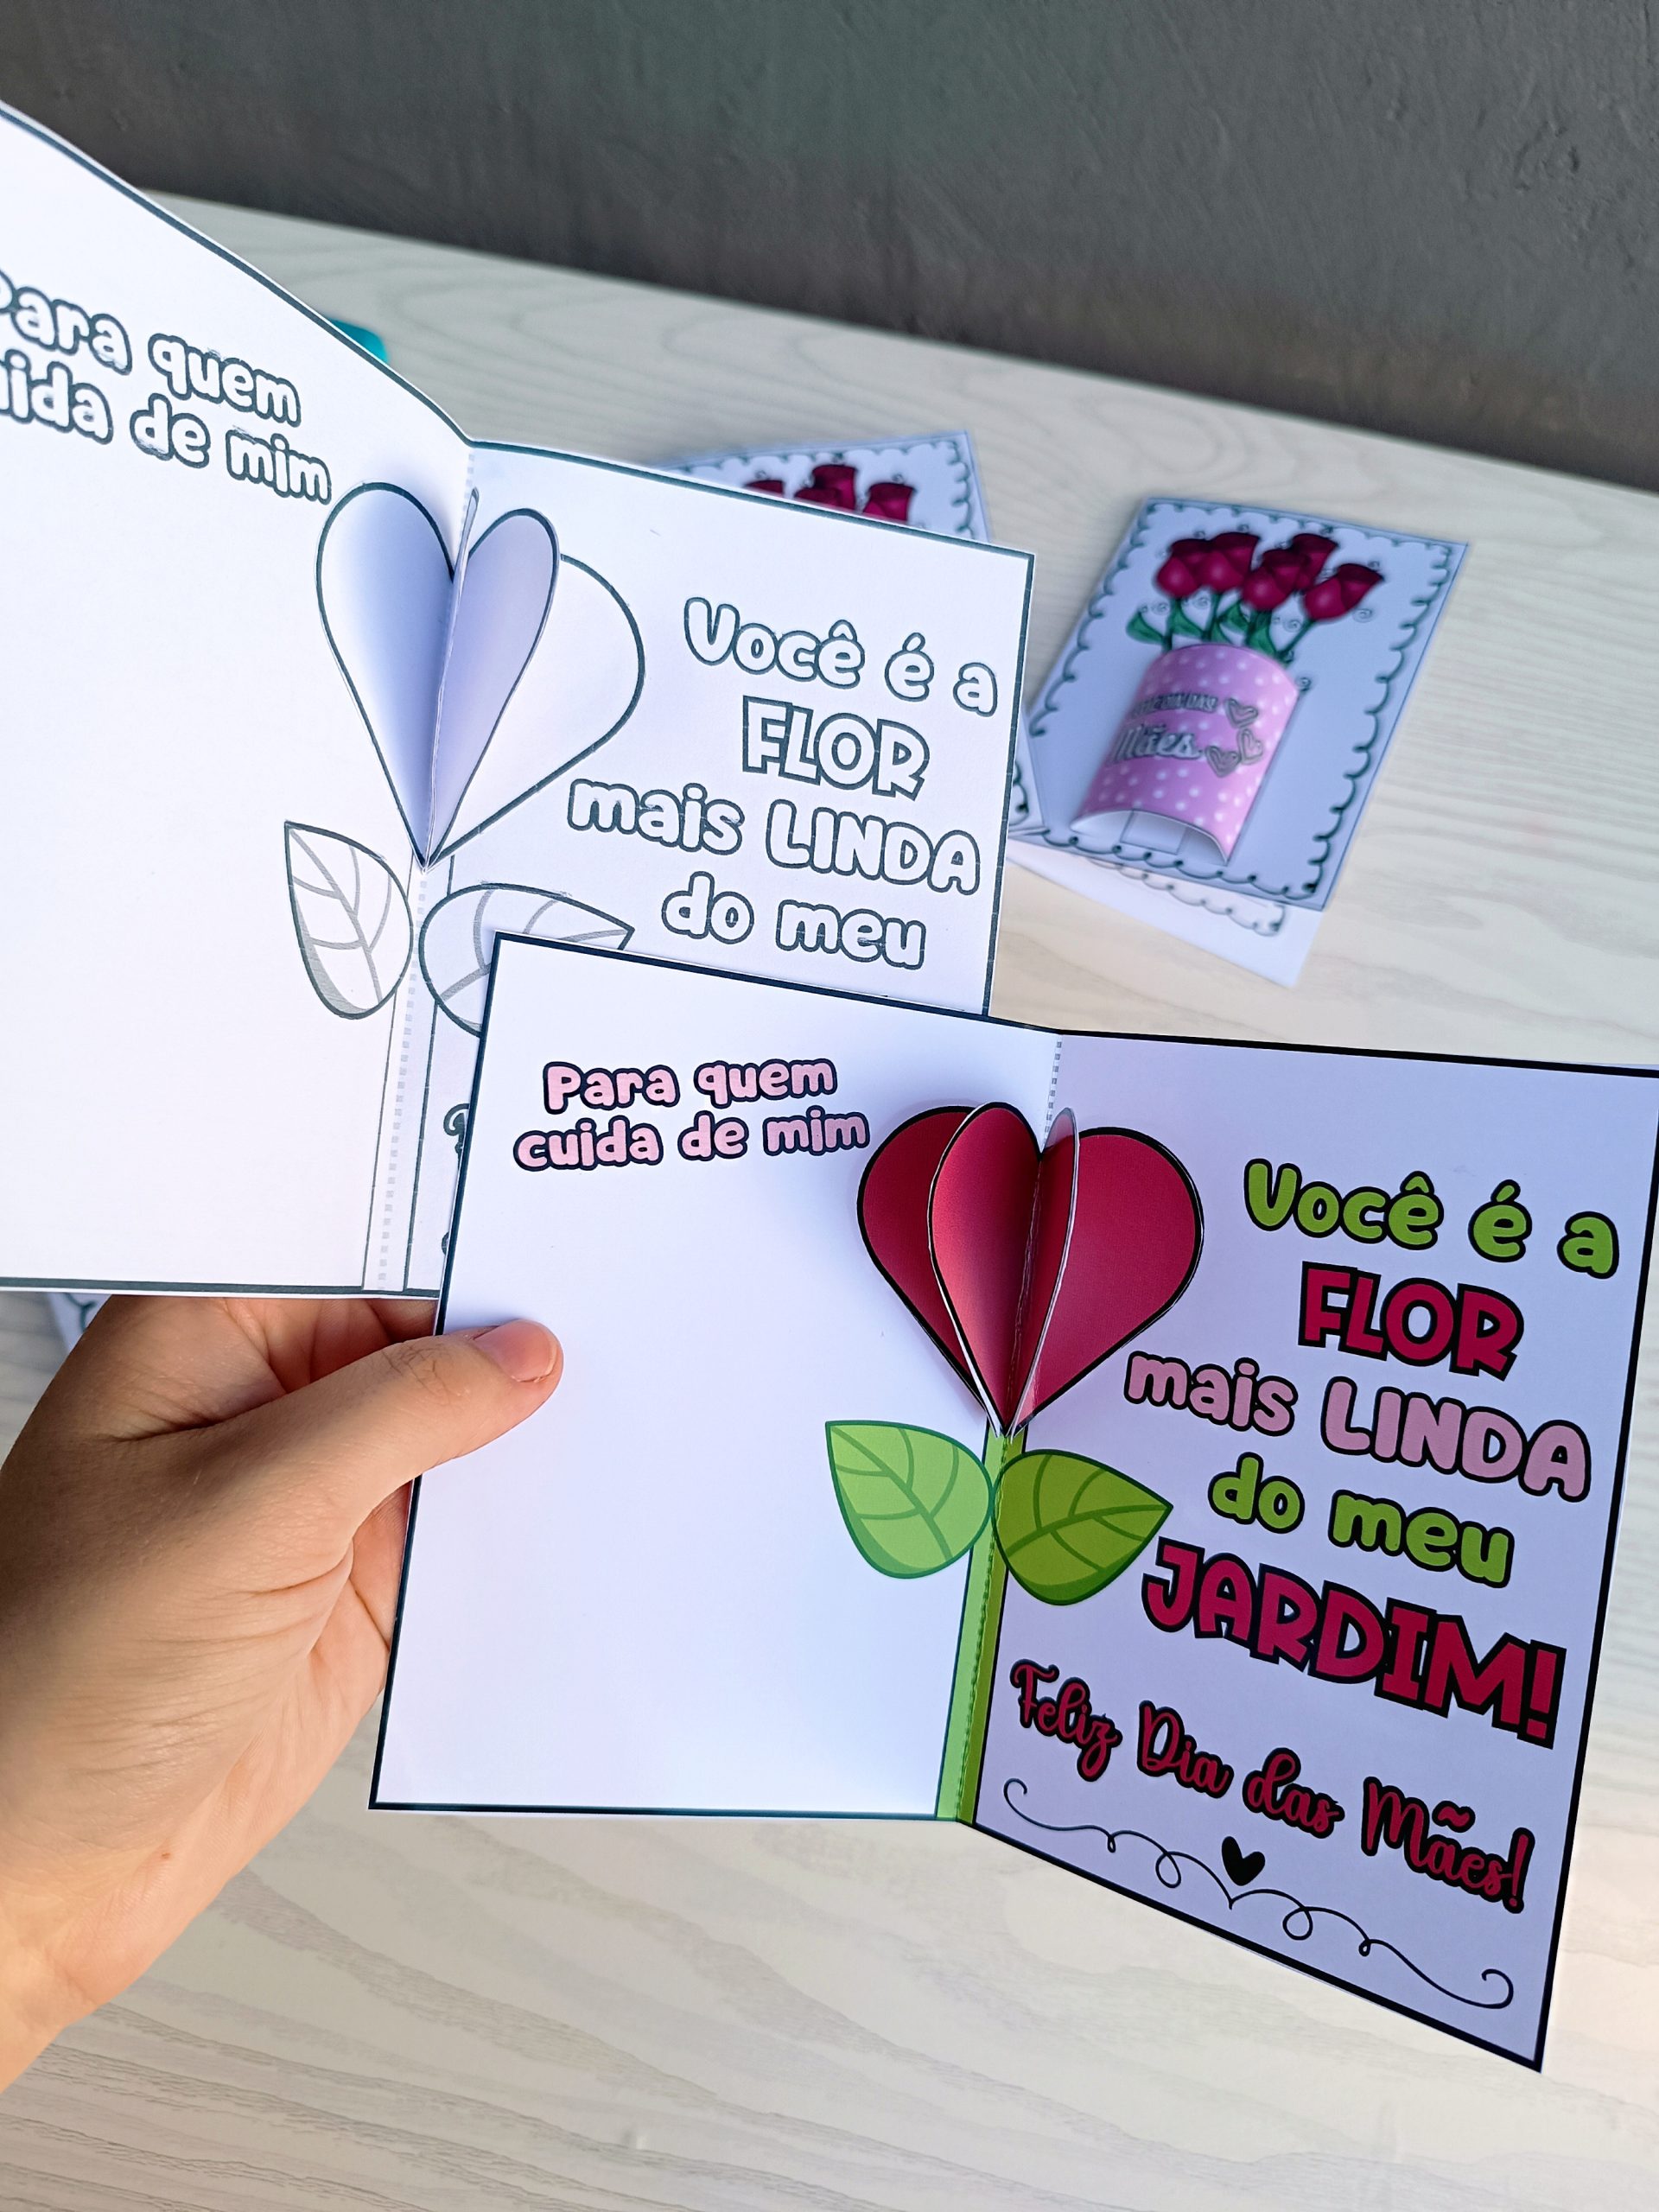 Para quem
cuida de mim
Você é a
FLOR
mais LINDA
do meu
Para quem
cuida de mim
Você é a
FLOR
mais LINDA
do meu
JARDIM!
Feliz Dia das Mães!
Mães